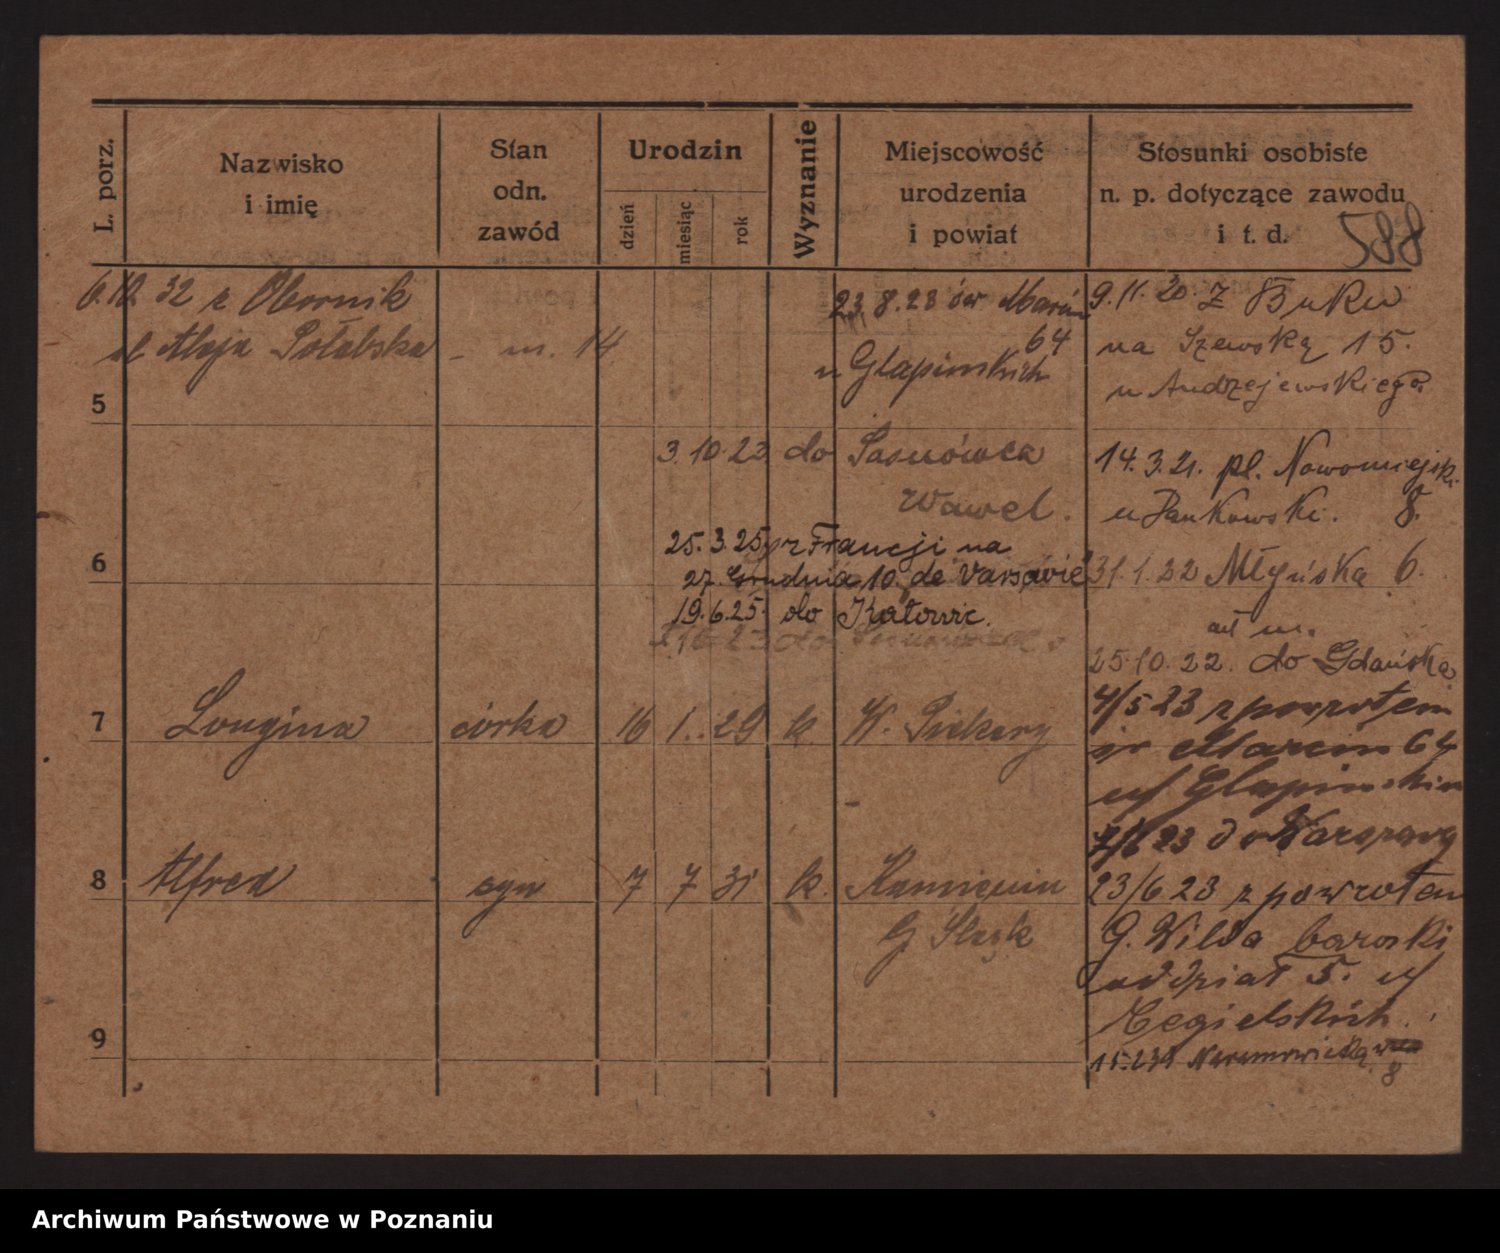 L. porz.
Nazwisko
i imię
Stan
odn.
zawód
Urodzin
dzień
miesiąc
rok
Wyznanie
Miejscowość
urodzenia
i powiat
Stosunki osobiste
n. p. dotyczące zawodu
i t. d.
588
6.12.32 z Obornik
ul Aleja Połabska - m. 14
23.8.23 św Marcin
64
u Glapinskich
9.11.20. Z Buku
na Szewską 15.
u Andrzejewskiego
5
3.10.22 do Sosnówca
Wawel.
14.3.21. pl. Nowomiejski
u Pankowski. 8.
25.3.25 z Francji na
27. Grudnia 10. de Varsovie
19.6.25. do Katowic.
6
31.1.22 Młyńska 6.
25.10.22. do Gdańska
7
Longina
córka
16
1.
29
k.
W. Piekary
4/5 23 z powrotem
św Marcin 64
u Glapinskich
7/6 23 do Warszawy
8
Alfred
syn
7
7
31
k.
Kamieniu
G Śląsk
23/6 23 z powrotem
G. Wilda baraki
oddział 5. u
Cegielskich.
9
8
Archiwum Państwowe w Poznaniu